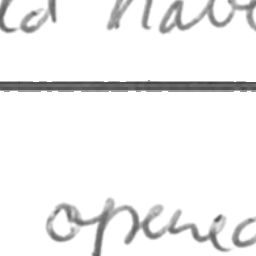 have
opened